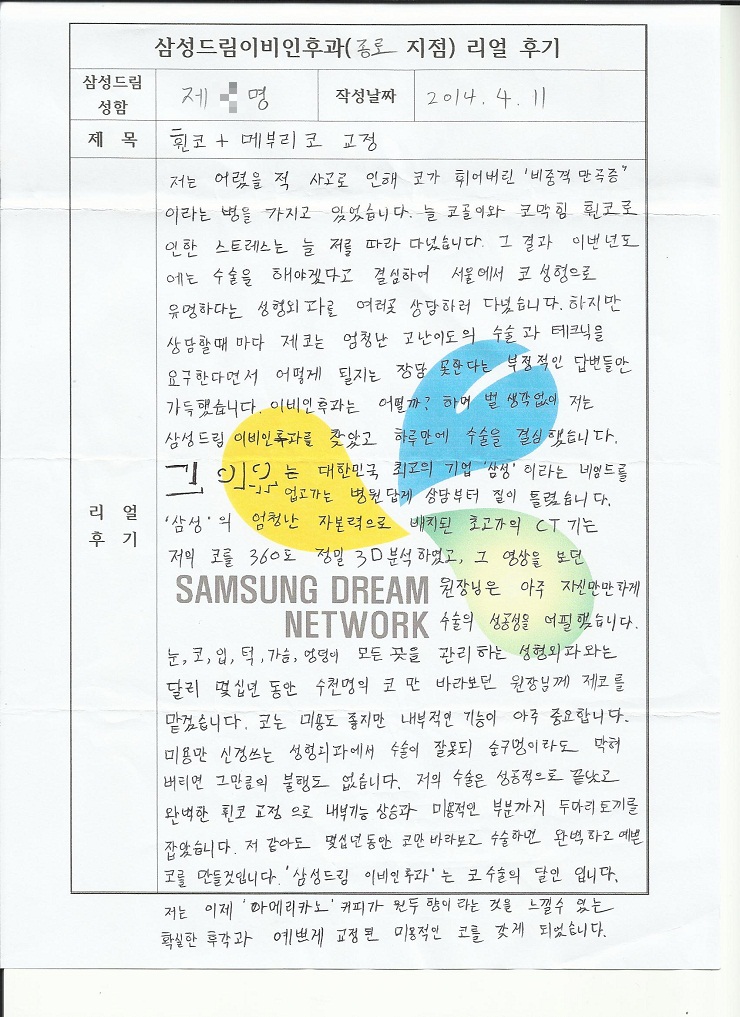 삼성드림이비인후과(종로 지점) 리얼 후기
삼성드림 성함 제 명 작성날짜 2014. 4. 11
제 목 휜코 + 메부리코 교정
리 얼 후 기
저는 어렸을 적 사고로 인해 코가 휘어버린 '비중격 만곡증"
이라는 병을 가지고 있었습니다. 늘 코골이와 코막힘 휜코로
인한 스트레스는 늘 저를 따라 다녔습니다. 그 결과 이번년도
에는 수술을 해야겠다고 결심하여 서울에서 코 성형으로
유명하다는 성형외과를 여러곳 상담하러 다녔습니다. 하지만
상담할때 마다 제코는 엄청난 고난이도의 수술과 테크닉을
요구한다면서 어떻게 될지는 장담 못한다는 부정적인 답변들만
가득했습니다. 이비인후과는 어떨까? 하며 별 생각없이 저는
삼성드림 이비인후과를 찾았고 하루만에 수술을 결심했습니다.
그 이유는 대한민국 최고의 기업 '삼성'이라는 네임드를
업고가는 병원답게 상담부터 질이 틀렸습니다.
'삼성'의 엄청난 자본력으로 배치된 초고가의 CT기는
저의 코를 360도 정밀 3D분석하였고, 그 영상을 보던
원장님은 아주 자신만만하게
수술의 성공성을 어필했습니다.
SAMSUNG DREAM
NETWORK
눈,코,입,턱,가슴,엉덩이 모든 곳을 관리하는 성형외과와는
달리 몇십년 동안 수천명의 코만 바라보던 원장님께 제코를
맡겼습니다. 코는 미용도 좋지만 내부적인 기능이 아주 중요합니다.
미용만 신경쓰는 성형외과에서 수술이 잘못되 숨구멍이라도 막혀
버리면 그만큼의 불행도 없습니다. 저의 수술은 성공적으로 끝났고
완벽한 휜코 교정 으로 내부기능 상승과 미용적인 부분까지 두마리토끼를
잡았습니다. 저 같아도 몇십년동안 코만 바라보고 수술하면 완벽하고 예쁜
코를 만들것입니다. '삼성드림 이비인후과'는 코수술의 달인 입니다.
저는 이제 '아메리카노' 커피가 원두향이라는 것을 느낄수 있는
확실한 후각과 예쁘게 교정된 미용적인 코를 갖게 되었습니다.